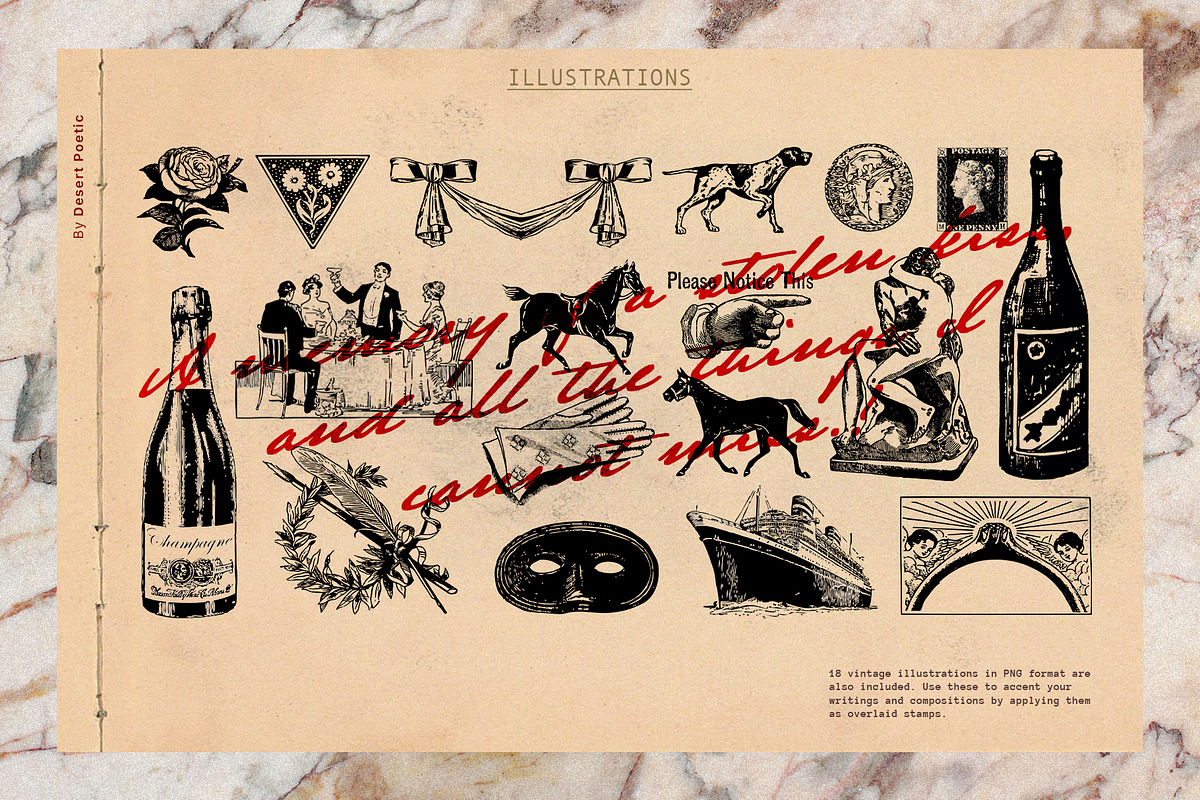 ILLUSTRATIONS
By Desert Poetic
POSTAGE
ONE PENNY
Please Notice This
A memory of a stolen kiss,
and all the things I
cannot miss..!
Champagne
18 vintage illustrations in PNG format are
also included. Use these to accent your
writings and compositions by applying them
as overlaid stamps.